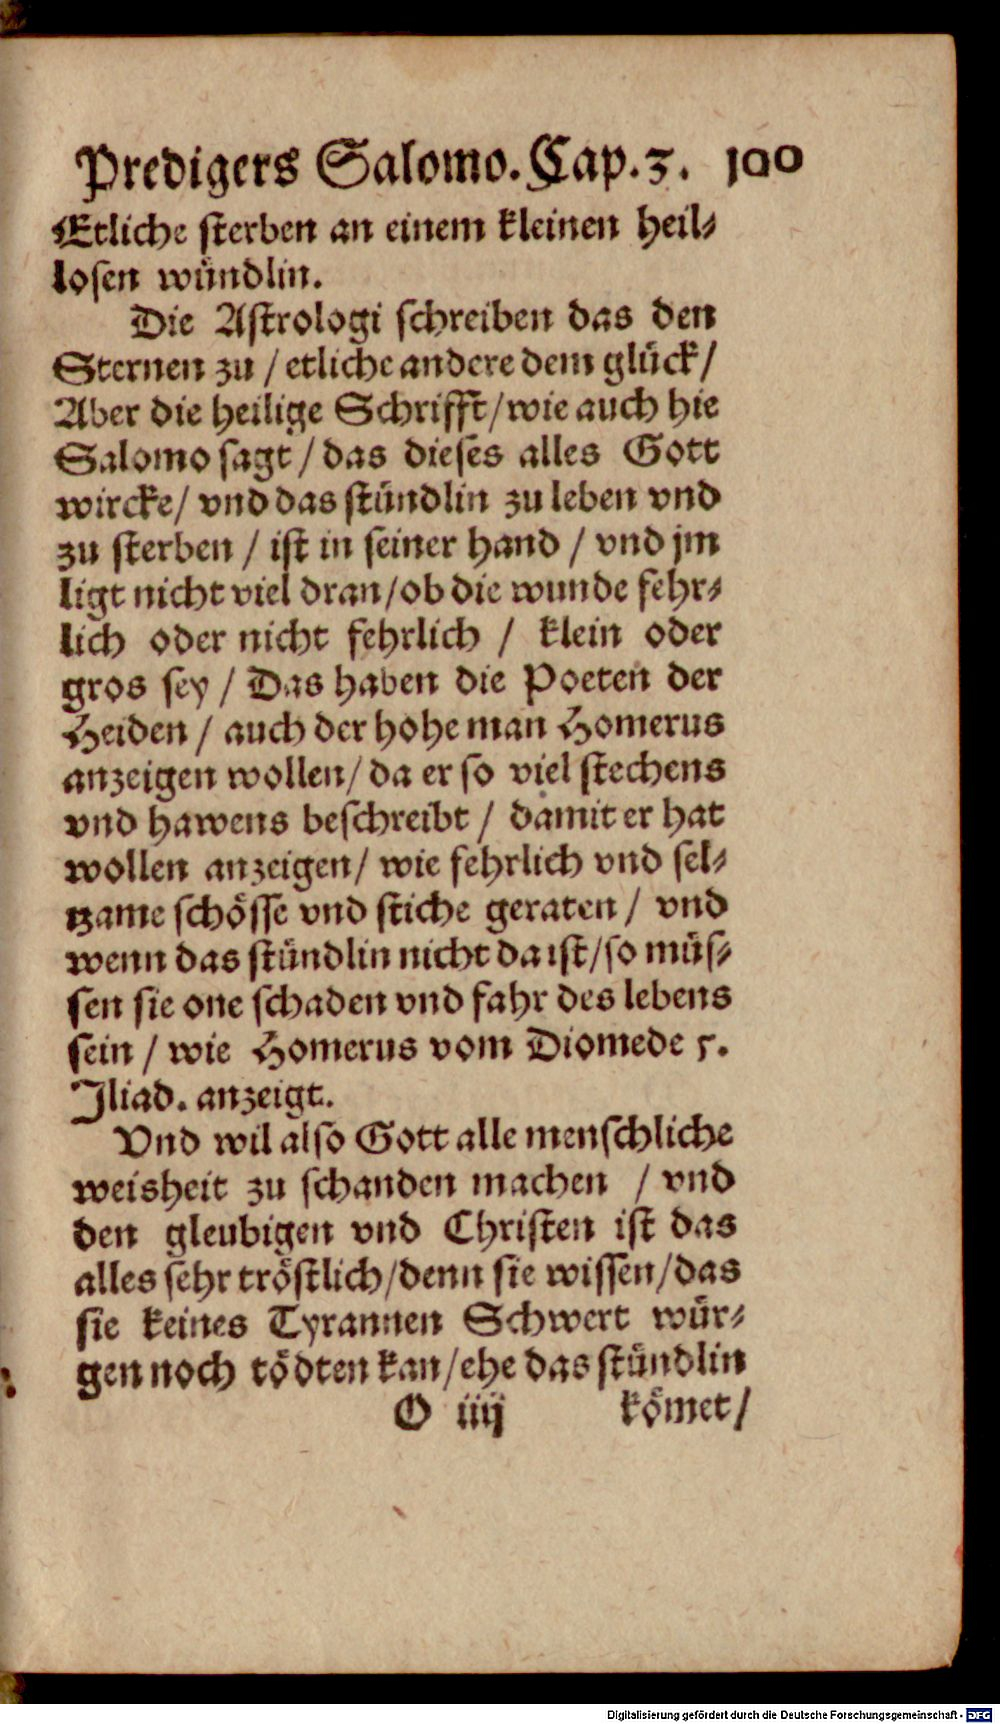 Predigers Salomo. Cap. 3. 100
Etliche sterben an einem kleinen heil⸗
losen wündlin.
Die Astrologi schreiben das den
Sternen zu / etliche andere dem glück /
Aber die heilige Schrifft / wie auch hie
Salomo sagt / das dieses alles Gott
wircke / vnd das stündlin zu leben vnd
zu sterben / ist in seiner hand / vnd jm
ligt nicht viel dran / ob die wunde fehr⸗
lich oder nicht fehrlich / klein oder
gros sey / Das haben die Poeten der
Heiden / auch der hohe man Homerus
anzeigen wollen / da er so viel stechens
vnd hawens beschreibt / damit er hat
wollen anzeigen / wie fehrlich vnd sel⸗
tzame schösse vnd stiche geraten / vnd
wenn das stündlin nicht da ist / so müs⸗
sen sie one schaden vnd fahr des lebens
sein / wie Homerus vom Diomede 5.
Iliad. anzeigt.
Vnd wil also Gott alle menschliche
weisheit zu schanden machen / vnd
den gleubigen vnd Christen ist das
alles sehr tröstlich / denn sie wissen / das
sie keines Tyrannen Schwert wür⸗
gen noch tödten kan / ehe das stündlin
O iiij kömet /
Digitalisierung gefördert durch die Deutsche Forschungsgemeinschaft - DFG